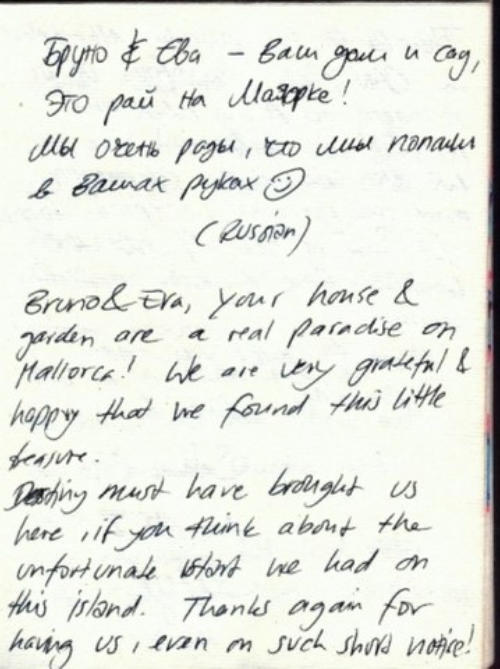 Бруно & Ева – Ваш дом и сад,
Это рай на Маёрке!
Мы очень рады, что мы попали
в Вашах руках ☺
(Russian)
Bruno & Eva, your house &
garden are a real paradise on
Mallorca! We are very grateful &
happy that we found this little
teasure.
Destiny must have brought us
here, if you think about the
unfortunate start we had on
this island. Thanks again for
having us, even on such short notice!